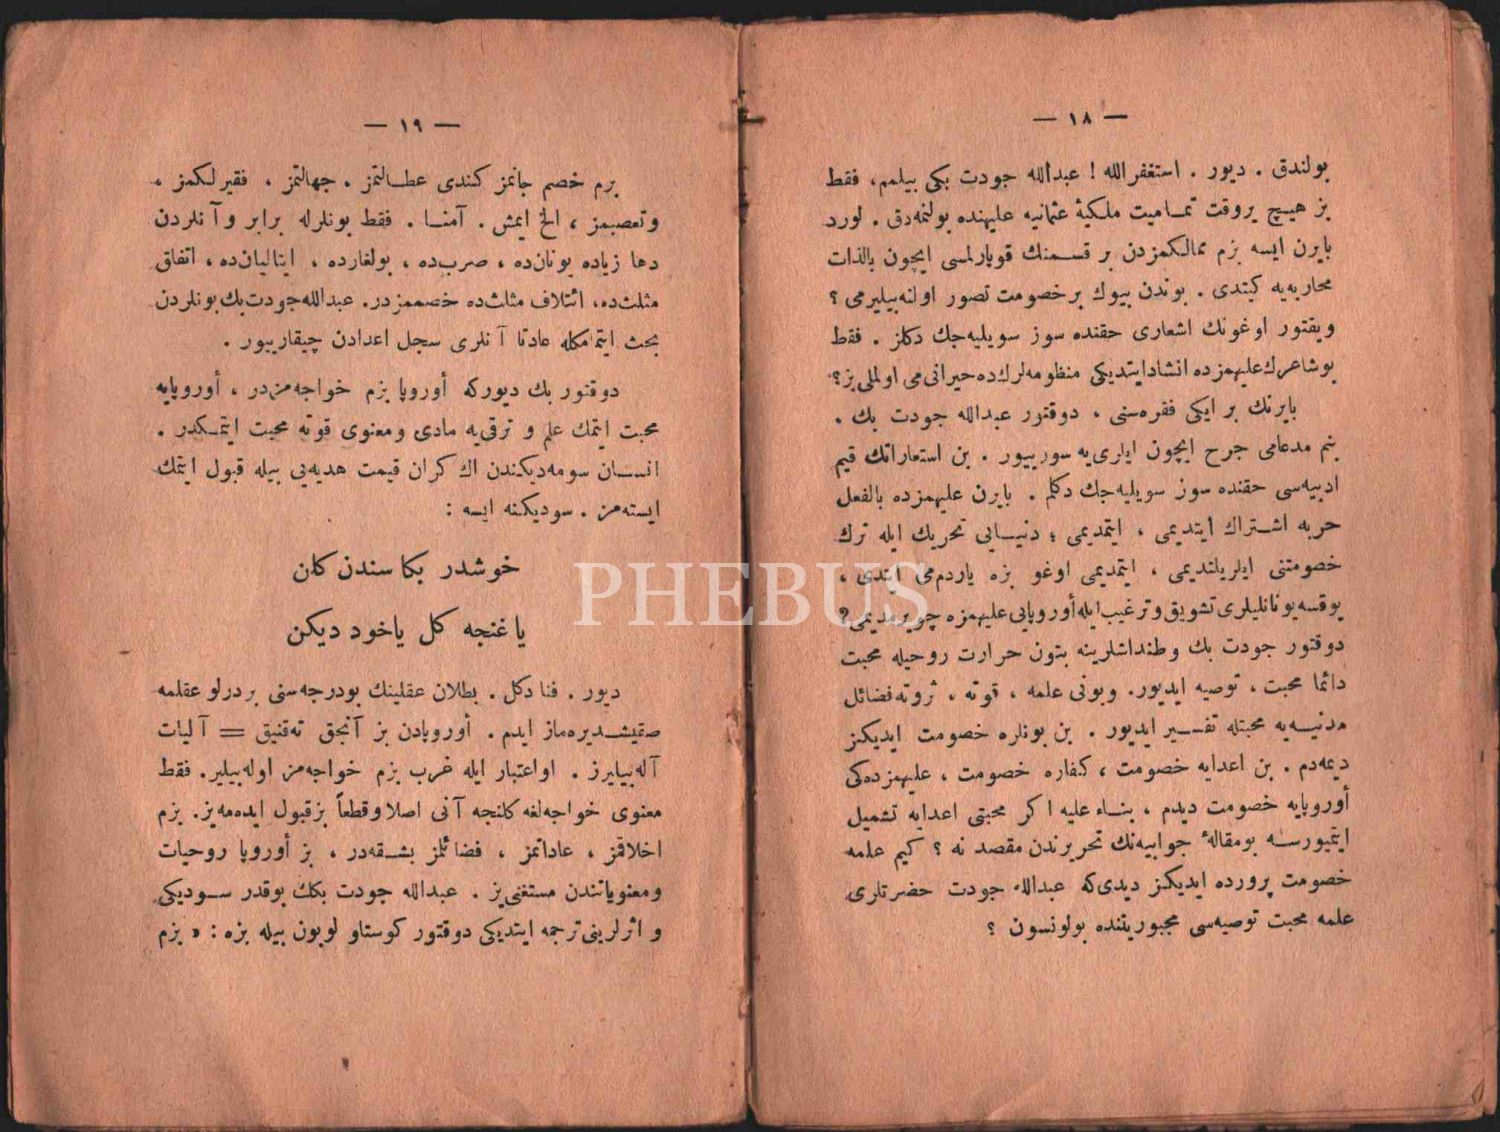 — ١٨ —
بولندق . دیور . استغفرالله ! عبدالله جودت بكی بیلمم، فقط
بز هیـچ بروقت تمـامیت ملكیۀ عثمانیه علیهنده بولنمه‌دق . لورد
بایرن ایسه بزم ممالكمزدن بر قسـمنك قوپارلمسی ایچون بالذات
محاربه‌یه كیتدی . بوندن بیوك برخصومت تصور اولنه‌بیلیرمی ؟
ویقتور اوغونك اشعاری حقنده سوز سویلیه‌جك دكلز . فقط
بوشاعرك علیهمزده انشاد ایتدیكی منظومه‌لرك ده حیرانی می اولملی یز ؟
بایرنك بر ایكی فقره‌سنی ، دوقتور عبدالله جودت بك .
بنم مدعامی جرح ایچون ایلری‌یه سوریبور . بن استعاراتك قیم
ادبیه‌سی حقنده سوز سویلیه‌جك دكلم . بایرن علیهمزده بالفعل
حربه اشـتراك ایتدیمی ، ایتمدیمی ؛ دنیـایی تحریك ایله ترك
خصومتنی ایلریلتدیمی ، ایتمدیمی اوغو بزه یاردم‌می ایتدی ،
یوقسه یونانلیلری تشویق وترغیب ایله أوروپایی علیهمزه چویرمدیمی؟
دوقتور جودت بك وطنداشلرینه بتون حرارت روحیله محبت
دائما محبت ، توصیه ایدیور. وبونی علمه ، قوته ، ثروته فضائل
مدنیه‌یه محبتله تفسـیر ایدیور . بن بونلره خصومت ایدیكز
دیمه‌دم . بن اعدایه خصومت ، كفاره خصومت ، علیهمزده‌كی
أوروپایه خصومت دیدم ، بنـاء علیه اكر محبتی اعدایه تشمیل
ایتمیورسـه بومقالۀ جوابیه‌نك تحریرندن مقصد نه ؟ كیم علمه
خصومت پرورده ایدیكز دیدی‌كه عبدالله جودت حضرتلری
علمه محبت توصیه‌سی مجبوریتنده بولونسون ؟
— ١٩ —
بزم خصم جانمز كندی عطـالتمز . جهالتمز ، فقیرلكمز ،
وتعصبمز ، الخ ایمش . آمنـا . فقط بونلرله برابر وآنلردن
دها زیاده یونان‌ده ، صرب‌ده ، بولغارده ، ایتالیان‌ده ، اتفاق
مثلث‌ده، ائتلاف مثلث‌ده خصممزدر. عبدالله جودت بك بونلردن
بحث ایتمامكله عادتا آنلری سجل اعدادن چیقارییور .
دوقتور بك دیوركه أوروپا بزم خواجه‌مزدر ، أوروپایه
محبت ایتمك علم و ترقی‌یه مادی ومعنوی قوته محبت ایتمـكدر .
انسـان سومه‌دیكندن اك كران قیمت هدیه‌یی بیله قبول ایتمك
ایسته‌مز . سودیكنه ایسه :
خوشدر بكا سندن كان
یا غنجه كل یاخود دیكن
دیور . فنا دكل . بطلان عقلینك بودرجه‌سنی بردرلو عقلمه
صیقیشـدیره‌ماز ایدم . أوروپادن بز آنجق ته‌قنیق = آلیات
آله‌بیلیرز . اواعتبار ایله غرب بزم خواجه‌مز اوله‌بیلیر. فقط
معنوی خواجه‌لغه كلنجه آنی اصلا وقطعاً بز قبول ایده‌مه‌یز. بزم
اخلاقمز ، عاداتمز ، فضائلمز بشـقه‌در ، بز أوروپا روحیات
ومعنویاتندن مستغنی‌یز . عبدالله جودت بكك بوقدر سـودیكی
و اثرلرینی ترجمه ایتدیكی دوقتور كوستاو لوبون بیله بزه : « بزم
PHEBUS